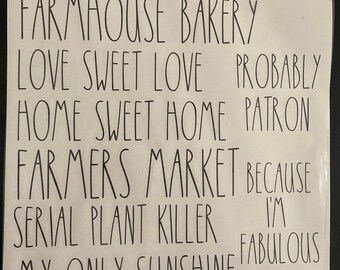 FARMHOUSE BAKERY
LOVE SWEET LOVE
HOME SWEET HOME
FARMERS MARKET
SERIAL PLANT KILLER
MY ONLY SUNSHINE
PROBABLY
PATRON
BECAUSE
I'M
FABULOUS